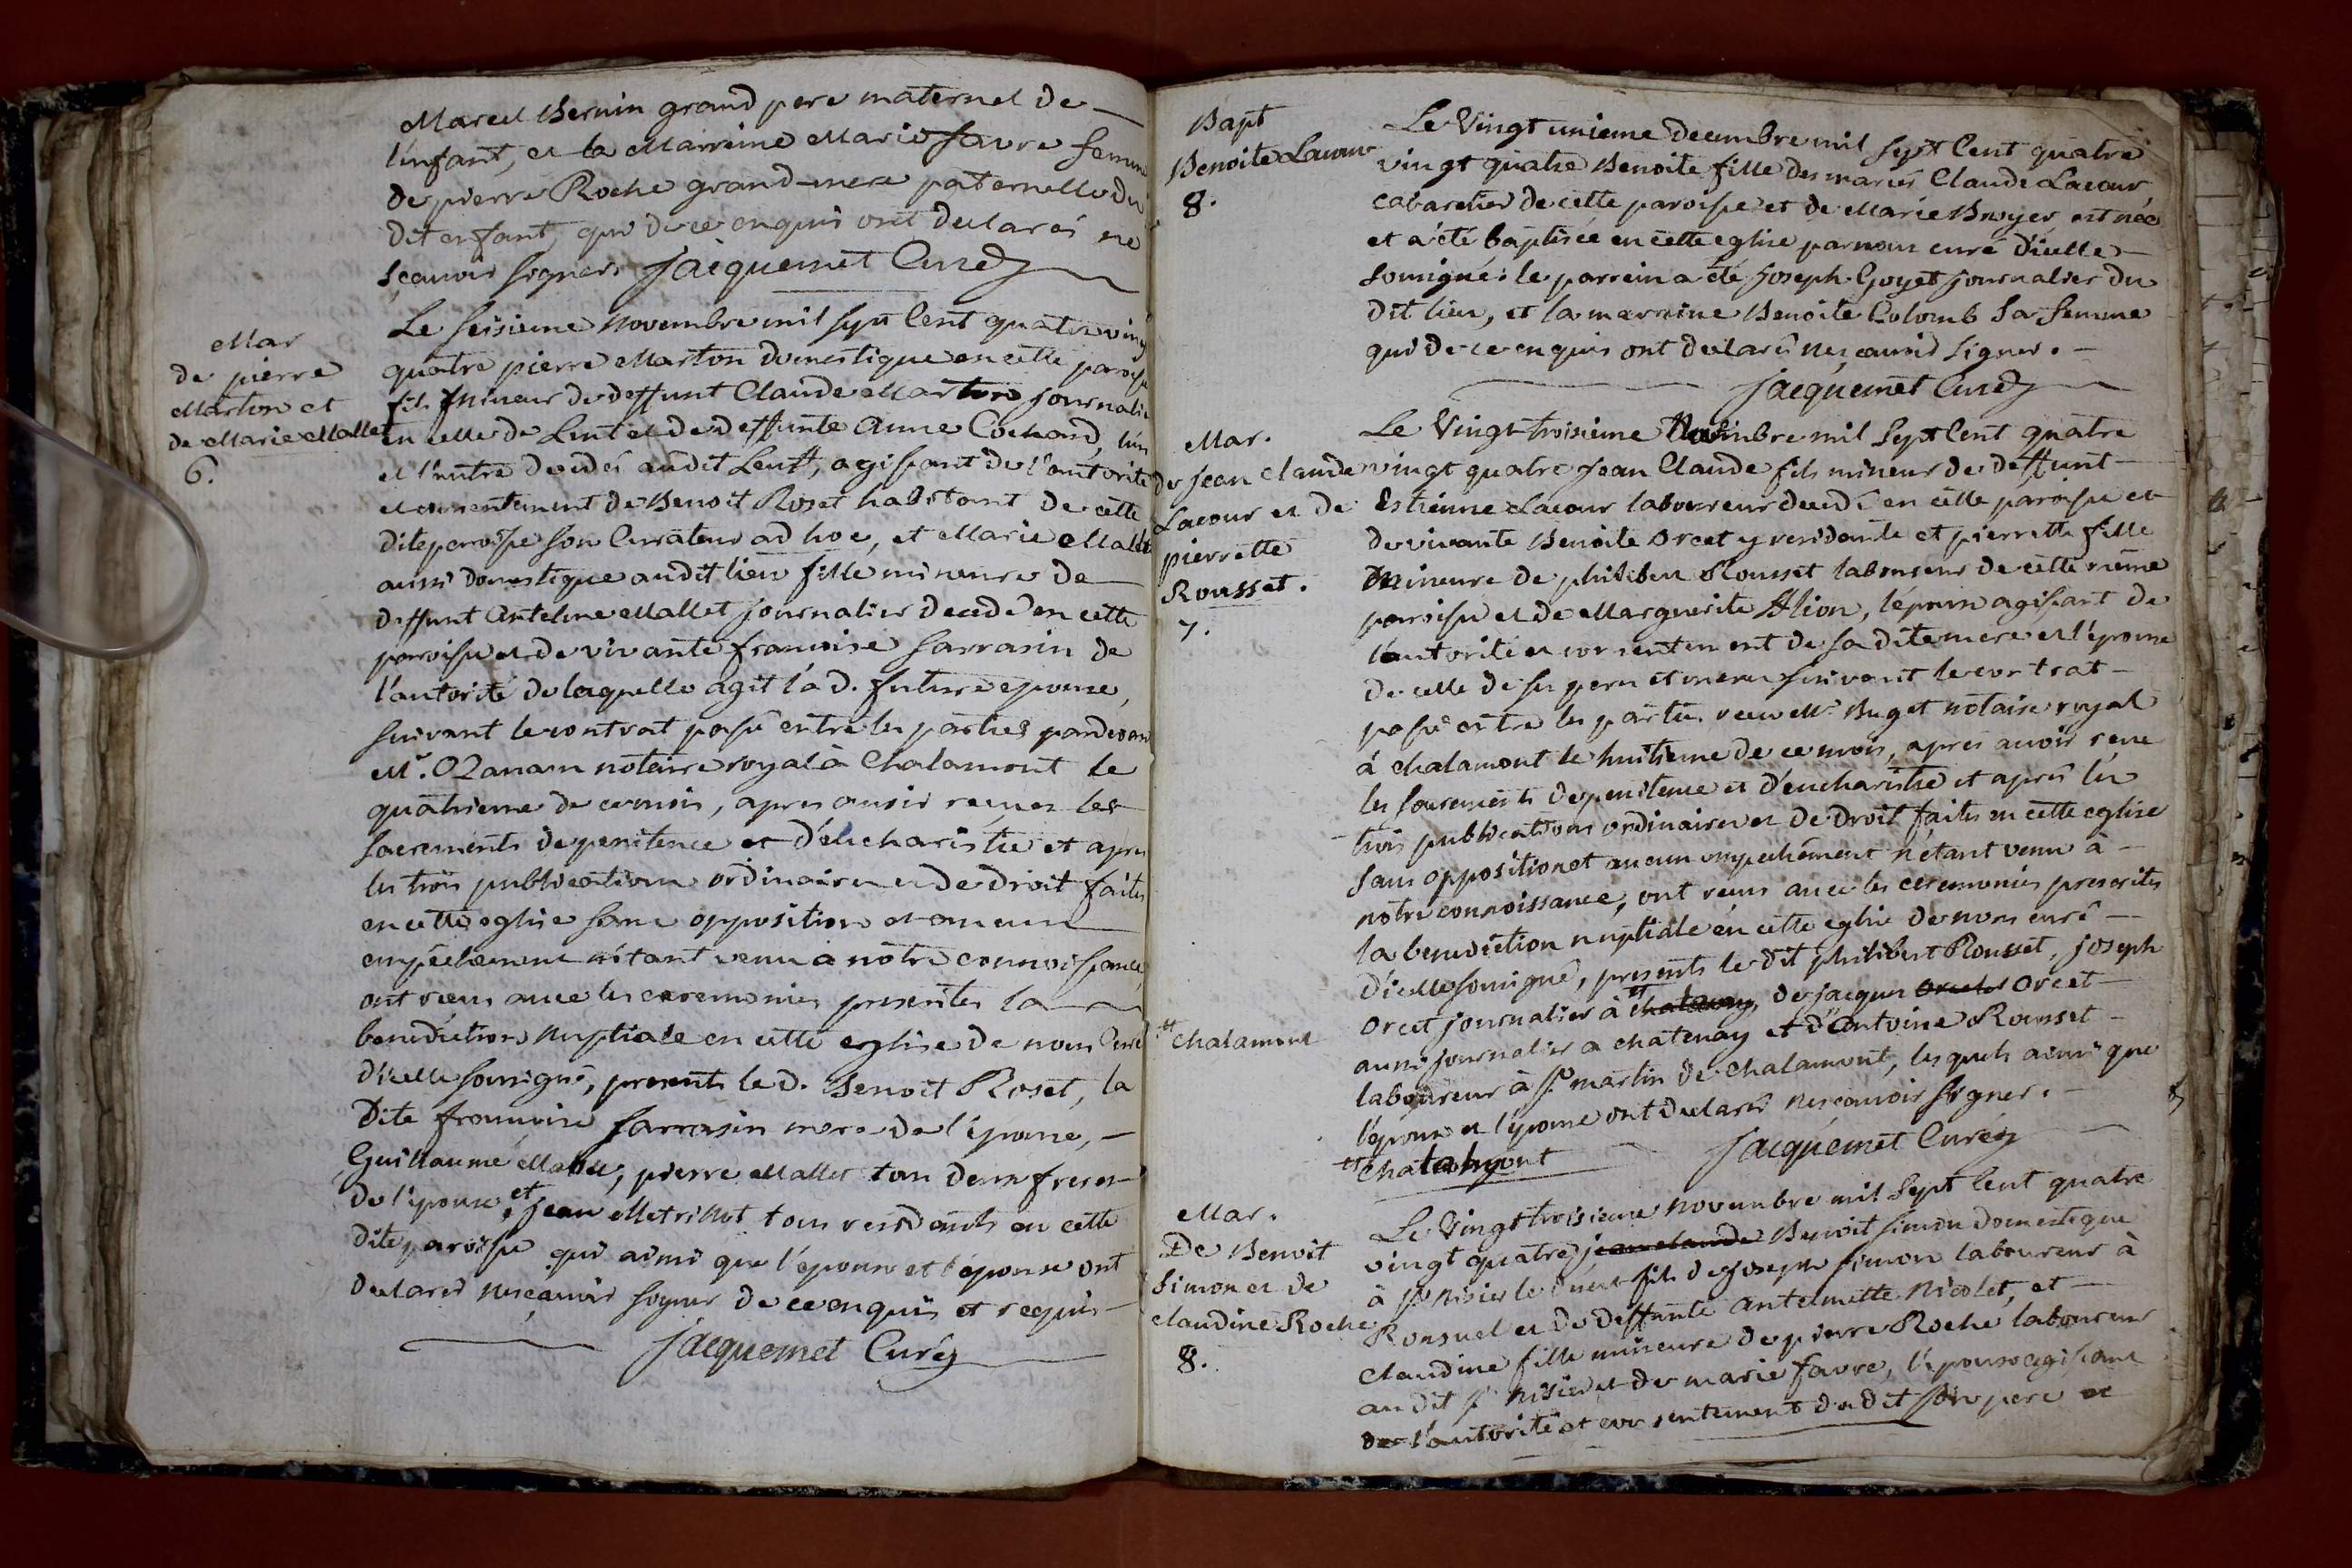 Marcel Bernin grand pere maternel de
l'enfant, et la Marreine Marie favre femme
de pierre Roche grand-mere paternelle du
dit enfant, qui de ce enquis ont declarés ne
sçavoir signer. Jacquemet Curé
Mar
de pierre
Marton et
de Marie Mallet
6.
Le seisieme novembre mil sept cent quatre vingt
quatre pierre Marton domestique en cette paroisse
fils mineur de deffunt Claude Marton journalier
en celle de Lent et de deffunte Anne Cochard, l'un
et l'autre decedés audit Lent, agissant de l'autorite
et consentement de Benoit Roset habitant de cette
dite paroisse son Curateur ad hoc, et Marie Mallet
aussi domestique audit lieu fille mineure de
deffunt Antelme Mallet journalier decedé en cette
paroisse et de vivante francoise Sarrasin de
l'autorité de laquelle agit la d. future epouse,
suivant le contrat passé entre les parties pardevant
Mr. Ozanam notaire royal à Chalamont le
quatrieme de ce mois, apres avoir reçues les
sacrements de penitence et d'eucharistie et apres
les trois publications ordinaires et de droit faites
en cette eglise sans opposition et aucun
empêchement n'étant venu à nôtre connoissance,
ont recus avec les ceremonies prescrites la
benediction nuptiale en cette eglise de nous Curé
d'icelle soussigné, presents le d. Benoit Roset, la
dite francoise Sarrasin mere de l'épouse,
Guillaume Mallet, pierre Mallet tous deux freres
de l'épouse, et jean Metrillot tous residants en cette
dite paroisse qui ainsi que l'époux et l'épouse ont
declarés nesçavoir signer de ce enquis et requis
Jacquemet Curé
Bapt
Benoite Lacour
8.
Le Vingt unieme decembre mil sept Cent quatre
vingt quatre Benoite fille des mariés Claude Lacour
cabaretier de cette paroisse et de Marie Bruyer est née
et a été baptisée en cette eglise par nous curé d'icelle
soussigné: le parrein a été joseph Goyet journalier du
dit lieu, et la marreine Benoite Colomb sa femme
qui de ce enquis ont declarés nesçavoir signer.
Jacquemet Curé
Mar.
de jean claude
Lacour et de
pierrette
Rousset.
7.
Le Vingt-troisieme Novembre mil Sept Cent quatre
vingt quatre jean Claude fils mineur de deffunt
Estienne Lacour laboureur decedé en cette paroisse et
de vivante Benoite Orcet y residante et pierrette fille
Mineure de philibert Rousset laboureur de cette même
paroisse et de Marguerite Alion, l'époux agissant de
l'autorité et consentement de sa dite mere et l'épouse
de celle de ses pere et mere suivant le contrat
passé entre les parties. receu Mr. Buget notaire royal
à chalamont le huitieme de ce mois, apres avoir receu
les sacrements de penitence et d'eucharistie et après les
trois publications ordinaires et de droit faites en cette eglise
sans opposition et aucun empechément n'étant venu à
nôtre connoissance, ont recus avec les ceremonies prescrites
la benediction nuptiale en cette eglise de nous curé
d'icelle soussigné, presents le dit philibert Rousset, joseph
Orcet journalier à chatenay, de jacques Orcet
aussi journalier a chatenay et d'antoine Rousset
laboureur à St martin de chalamont, lesquels ainsi que
l'époux et l'épouse ont declarés nesçavoir signer.
chalamont
Chalamont
Jacquemet Curé
Mar.
De Benoit
Simon et de
claudine Roche
8.
Le Vingt troisieme novembre mil Sept Cent quatre
vingt quatre jean claude Benoit simon domestique
à St nisier le desert fils de joseph simon laboureur à
Ronsuel et de deffunte Antelmette Nicolet, et
Claudine fille mineure de pierre Roche laboureur
au dit St nisier et de marie favre, l'époux agissant
de l'autorité et consentement du dit son pere et